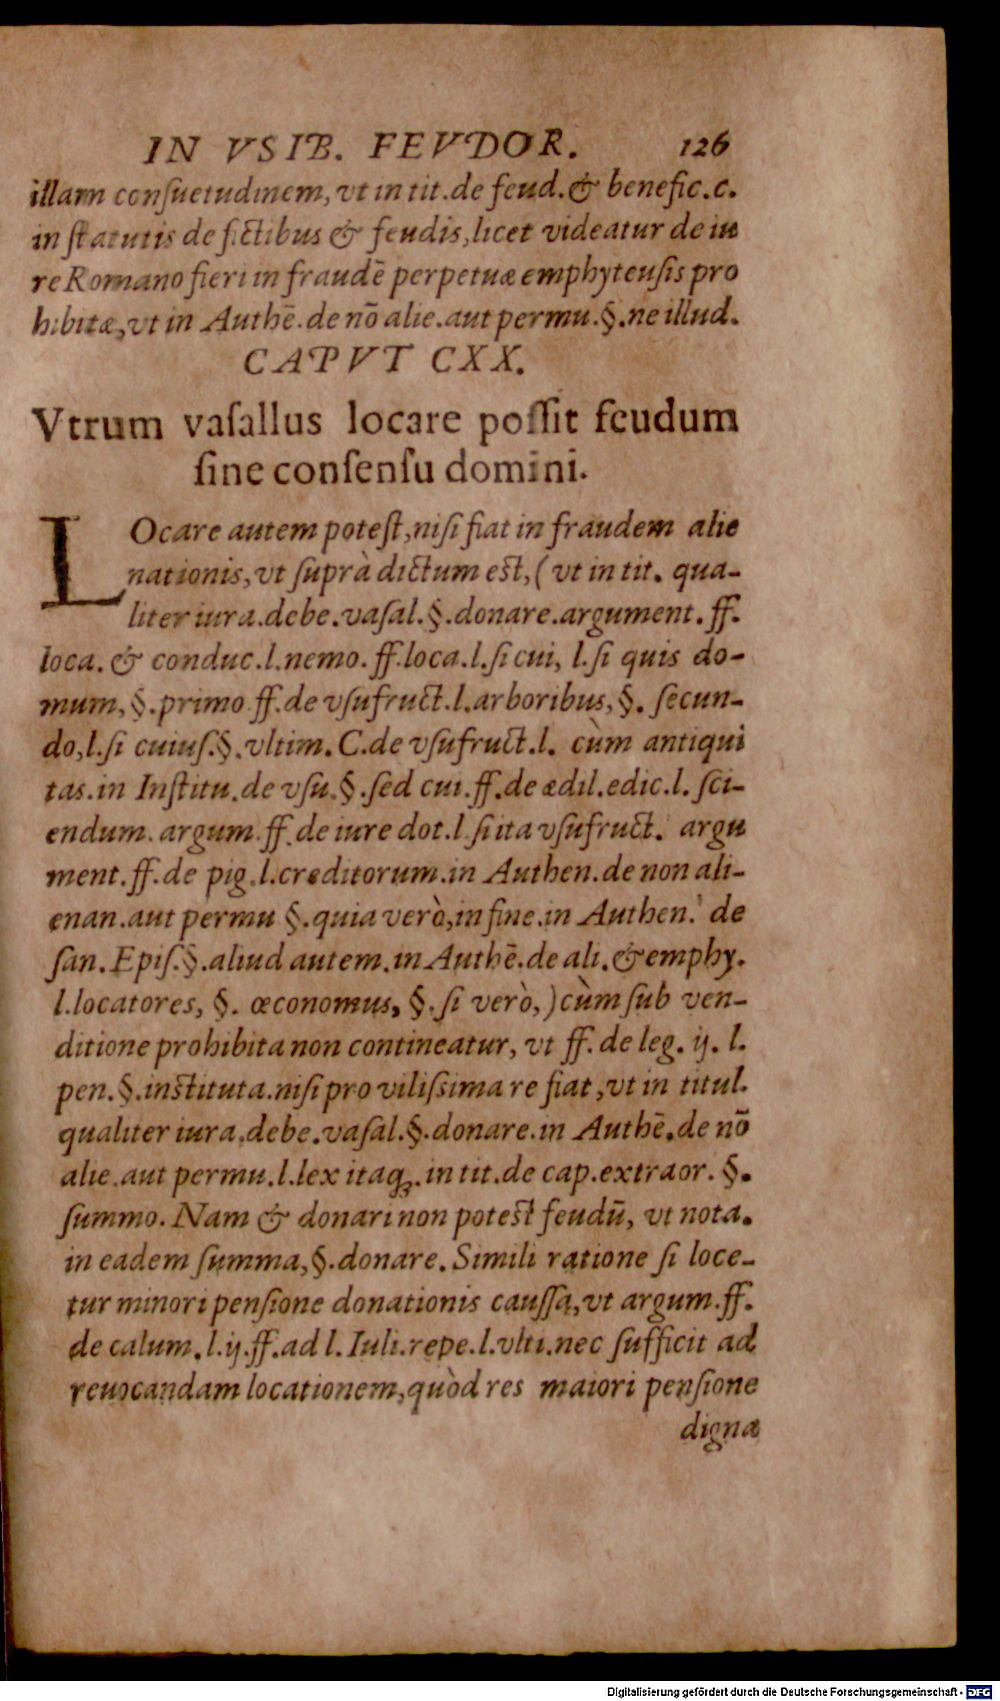 IN VSIB. FEVDOR. 126
illam conſuetudinem, vt in tit. de feud. & benefic. c.
in ſtatutis de fictibus & feudis, licet videatur de iu
re Romano fieri in fraudē perpetuæ emphyteuſis pro
hibitæ, vt in Authē. de nō alie. aut permu. §. ne illud.
CAPVT CXX.
Vtrum vaſallus locare poſſit feudum
ſine conſenſu domini.
LOcare autem poteſt, niſi fiat in fraudem alie
nationis, vt ſuprà dictum eſt, (vt in tit. qua-
liter iura. debe. vaſal. §. donare. argument. ff.
loca. & conduc. l. nemo. ff. loca. l. ſi cui, l. ſi quis do-
mum, §. primo ff. de vſufruct. l. arboribus, §. ſecun-
do, l. ſi cuiuſ. §. vltim. C. de vſufruct. l. cùm antiqui
tas. in Inſtitu. de vſu. §. ſed cui. ff. de ædil. edic. l. ſci-
endum. argum. ff. de iure dot. l. ſi ita vſufruct. argu
ment. ff. de pig. l. creditorum. in Authen. de non ali-
enan. aut permu §. quia verò, in fine. in Authen. de
ſan. Epiſ. §. aliud autem. in Authē. de ali. & emphy.
l. locatores, §. œconomus, §. ſi verò,) cùm ſub ven-
ditione prohibita non contineatur, vt ff. de leg. ij. l.
pen. §. inſtituta. niſi pro viliſsima re fiat, vt in titul.
qualiter iura. debe. vaſal. §. donare. in Authē. de nō
alie. aut permu. l. lex itaq;. in tit. de cap. extraor. §.
ſummo. Nam & donari non poteſt feudū, vt nota.
in eadem ſumma, §. donare. Simili ratione ſi loce-
tur minori penſione donationis cauſſa, vt argum. ff.
de calum. l. ij. ff. ad l. Iuli. repe. l. vlti. nec ſufficit ad
reuocandam locationem, quòd res maiori penſione
digna
Digitalisierung gefördert durch die Deutsche Forschungsgemeinschaft - DFG